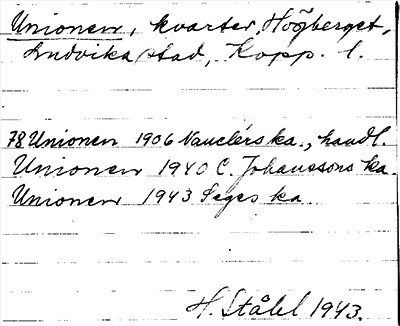 Unionen, kvarter, Högberget,
Ludvika stad, Kopp. l.
78 Unionen 1906 Nauclérs ka., handl.
Unionen 1940 C. Johanssons ka.
Unionen 1943 Seges ka.
H. Ståhl 1943.